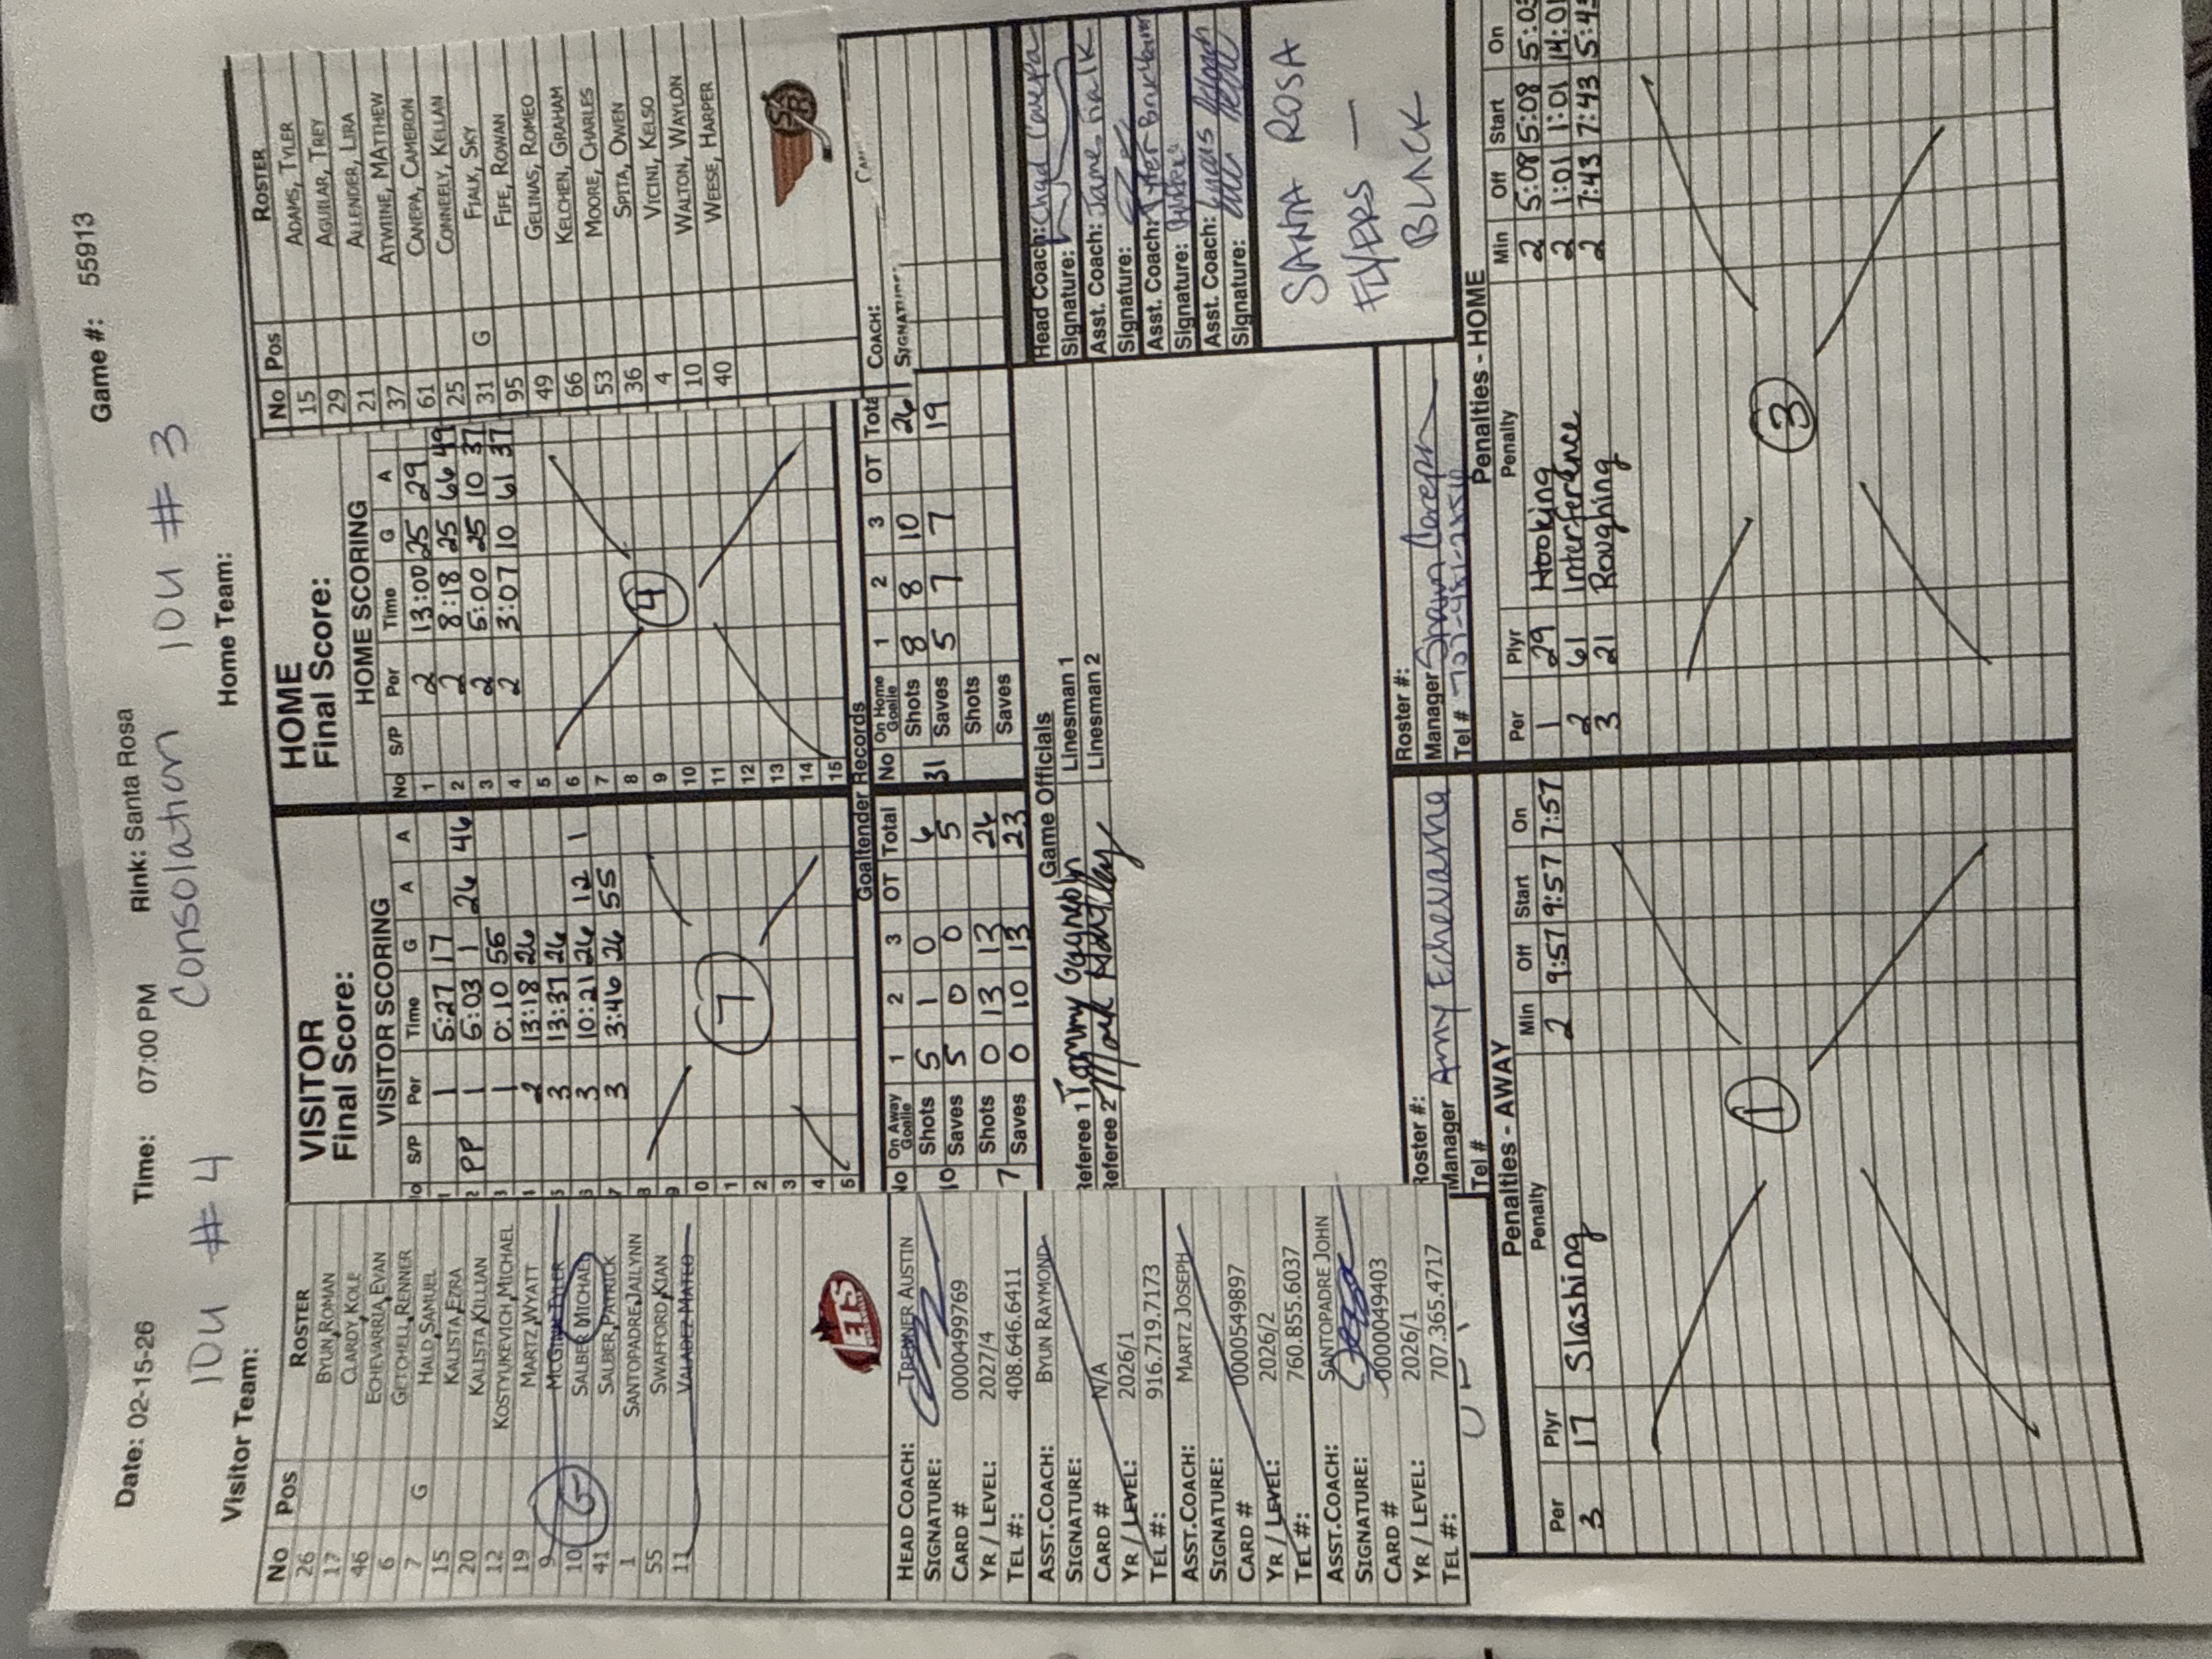 Date: 02-15-26 Time: 07:00 PM Rink: Santa Rosa Game #: 55913
10U # 4 Consolation 10U # 3
Visitor Team: Home Team:
No Pos ROSTER
26 BYUN, ROMAN
17 CLARDY, KOLE
46 ECHEVARRIA, EVAN
6 GETCHELL, RENNER
7 G HALD, SAMUEL
15 KALISTA, EZRA
20 KALISTA, KILLIAN
12 KOSTYUKEVICH, MICHAEL
19 MARTZ, WYATT
9
10 G SALBER, MICHAEL
41 SALBER, PATRICK
1 SANTOPADRE, JAILYNN
55 SWAFFORD, KIAN
11 VALADEZ, MATEO
JETS
VISITOR
Final Score:
VISITOR SCORING
No S/P Per Time G A A
1 1 5:27 17
2 PP 1 5:03 1 26 46
3 1 0:10 55
4 2 13:18 26
5 3 13:37 26
6 3 10:21 26 12 1
7 3 3:46 26 55
8
9
0
1
2
3
4
5
7
HOME
Final Score:
HOME SCORING
No S/P Per Time G A
1 2 13:00 25 29
2 2 8:18 25 66 49
3 2 5:00 25 10 37
4 2 3:07 10 61 37
5
6
7
8
9
10
11
12
13
14
15
4
No Pos ROSTER
15 ADAMS, TYLER
29 AGUILAR, TREY
21 ALLENDER, LIRA
37 ATWINE, MATTHEW
61 CANEPA, CAMERON
25 CONNEELY, KELLAN
31 G FIALK, SKY
95 FIFE, ROWAN
49 GELINAS, ROMEO
66 KELCHEN, GRAHAM
53 MOORE, CHARLES
36 SPITA, OWEN
4 VICINI, KELSO
10 WALTON, WAYLON
40 WEESE, HARPER
SR
COACH:
SIGNATURE:
Goaltender Records
No On Away Goalie 1 2 3 OT Total
10 Shots 5 1 0 6
Saves 5 0 0 5
7 Shots 0 13 13 26
Saves 0 10 13 23
No On Home Goalie 1 2 3 OT Total
31 Shots 8 8 10 26
Saves 5 7 7 19
Shots
Saves
Game Officials
Referee 1 Tommy Linesman 1
Referee 2 Mark Linesman 2
HEAD COACH: TRENNER AUSTIN
SIGNATURE:
CARD # 0000499769
YR / LEVEL: 2027/4
TEL #: 408.646.6411
ASST.COACH: BYUN RAYMOND
SIGNATURE:
CARD # N/A
YR / LEVEL: 2026/1
TEL #: 916.719.7173
ASST.COACH: MARTZ JOSEPH
SIGNATURE:
CARD # 0000549897
YR / LEVEL: 2026/2
TEL #: 760.855.6037
ASST.COACH: SANTOPADRE JOHN
SIGNATURE:
CARD # 0000049403
YR / LEVEL: 2026/1
TEL #: 707.365.4717
Head Coach: Chad Canepa
Signature:
Asst. Coach: James Fialk
Signature:
Asst. Coach: Tyler
Signature:
Asst. Coach:
Signature:
SANTA ROSA
FLYERS —
BLACK
Roster #:
Manager Amy Echevarria
Tel #
Roster #:
Manager Shawn
Tel #
Penalties - AWAY
Per Plyr Penalty Min Off Start On
3 17 Slashing 2 9:57 9:57 7:57
1
Penalties - HOME
Per Plyr Penalty Min Off Start On
1 29 Hooking 2 5:08 5:08
2 61 Interference 2 1:01 1:01
3 21 Roughing 2 7:43 7:43
3